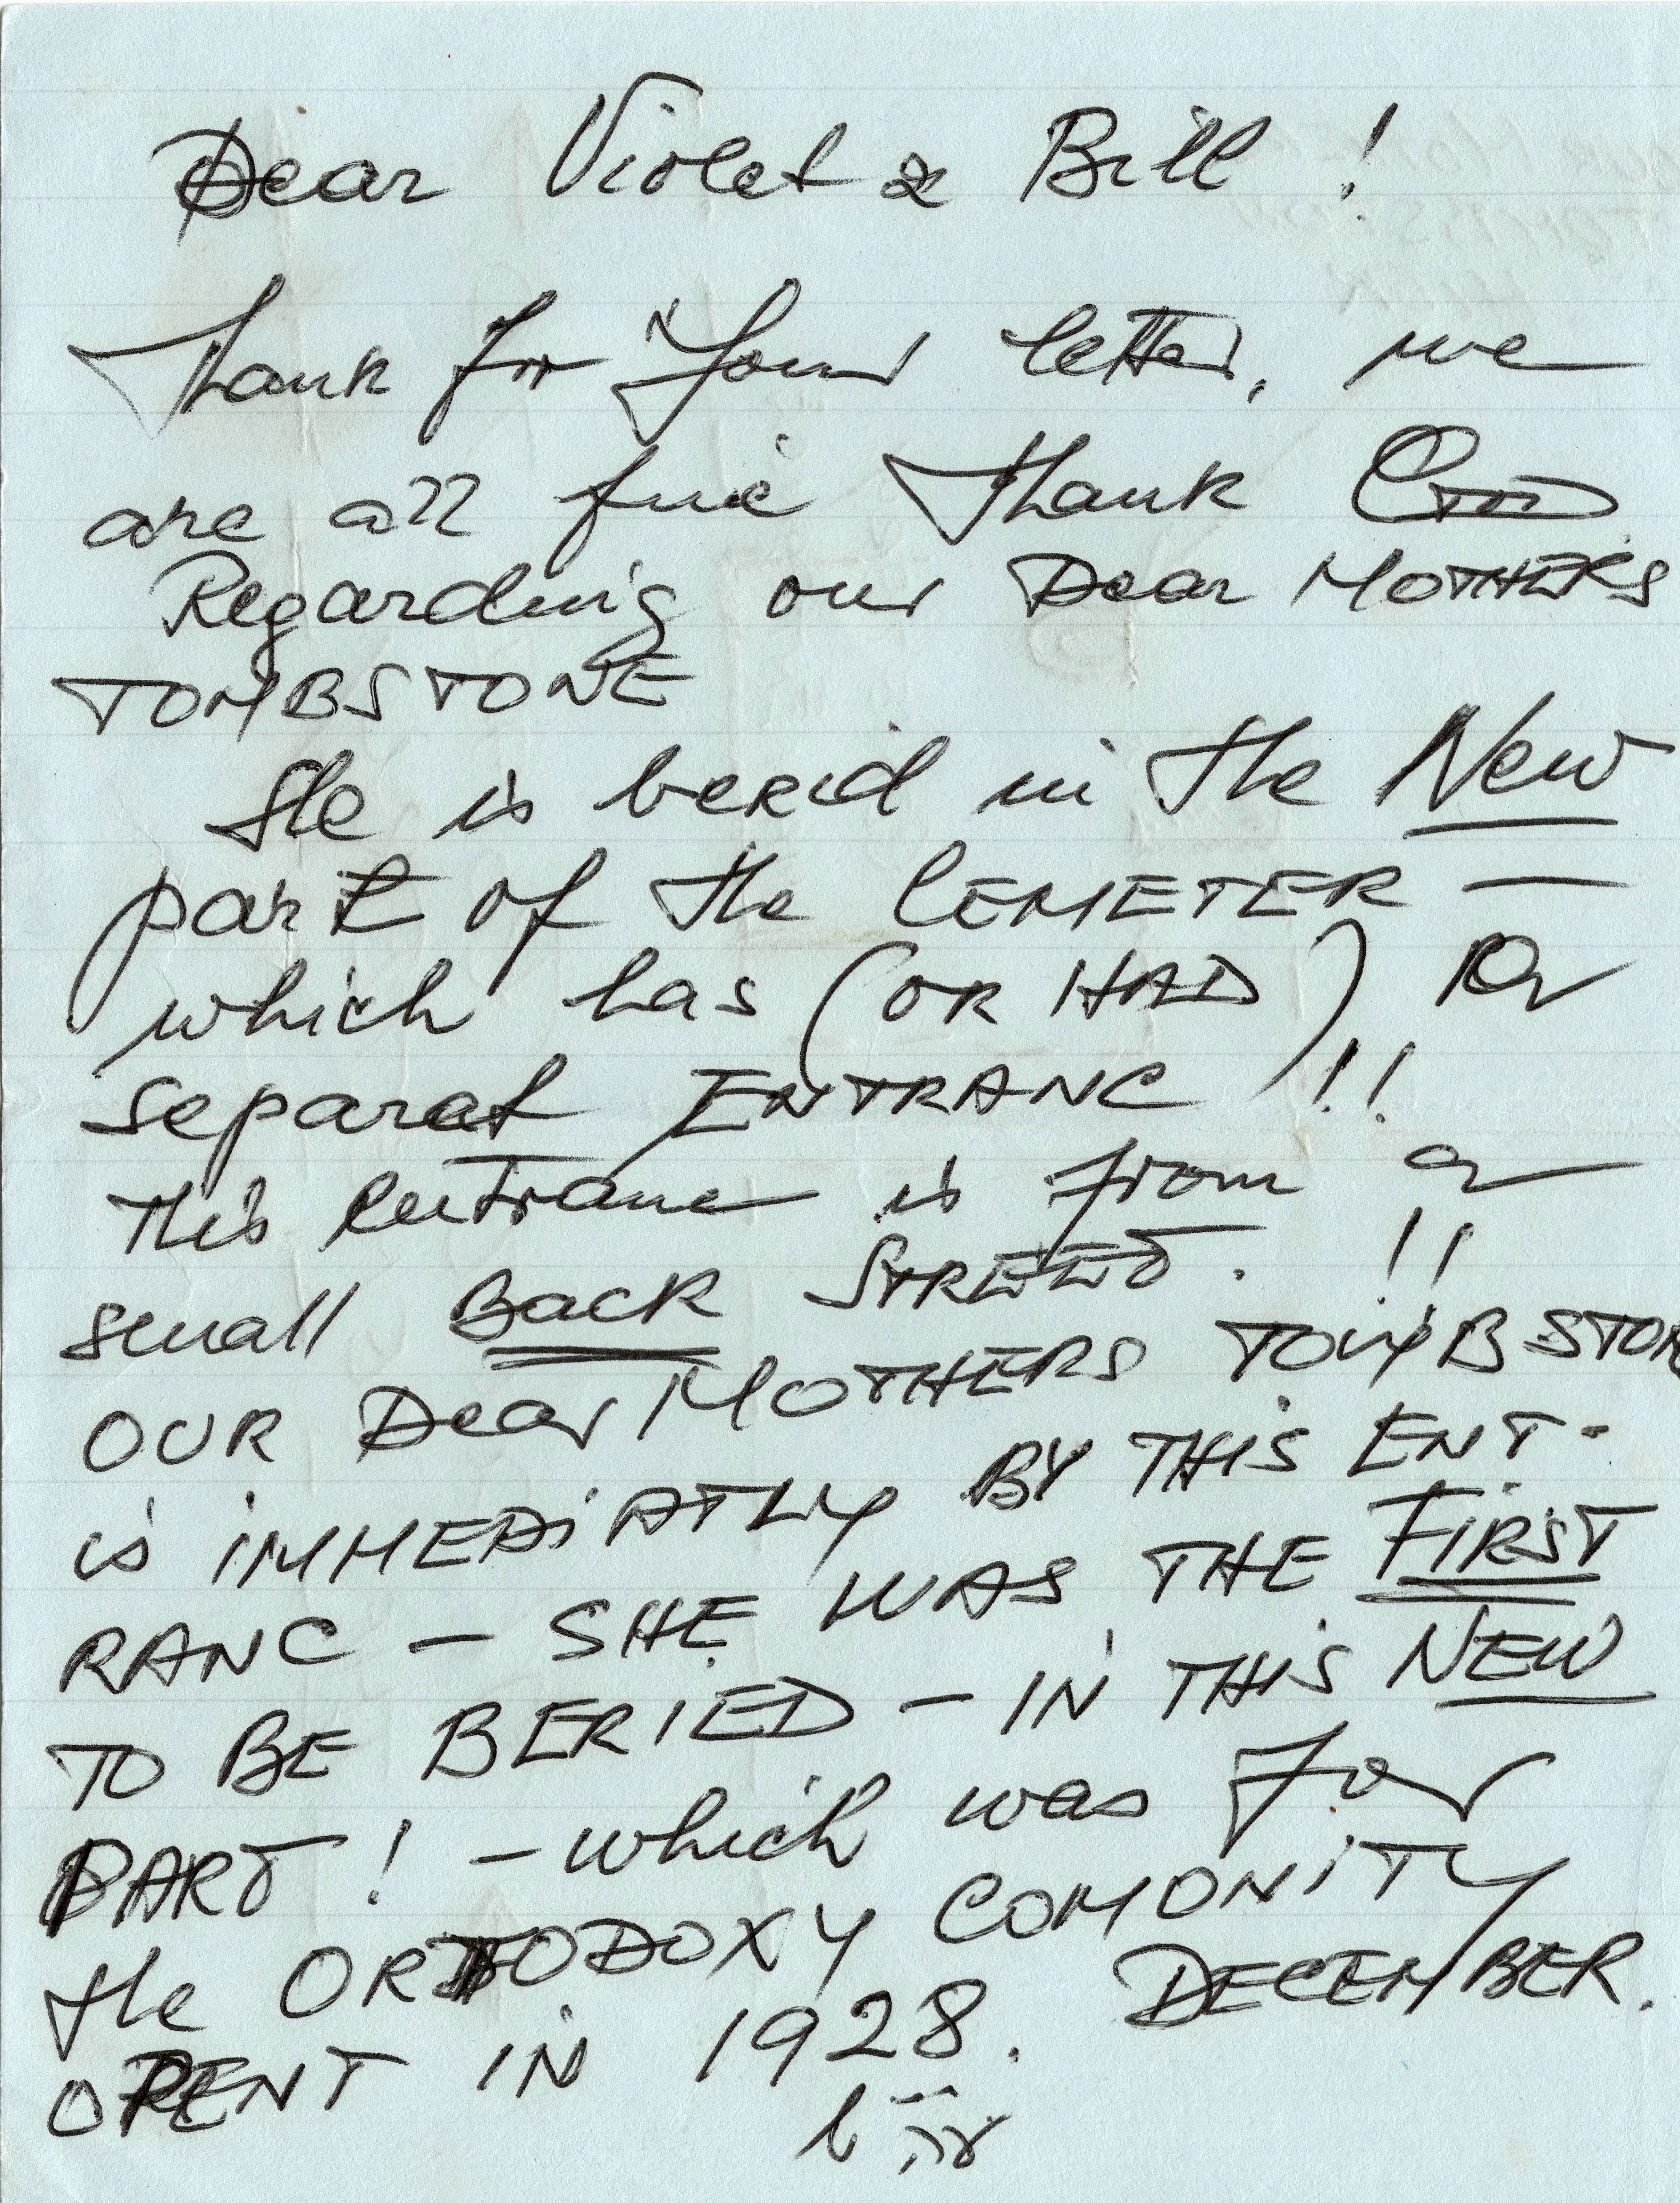 Dear Violet & Bill !
Thank for Your letter, we
are all fine Thank GOD
Regarding our Dear MOTHERS
TOMBSTONE
She is berid in the New
part of the CEMETER —
which has (OR HAD) a
separat ENTRANC !!
this entranc is from a
small Back STREET. !!
OUR Dear MOTHERS TOMBSTON
is iMMEDiATLY BY THIS ENT-
RANC — SHE WAS THE FIRST
TO BE BERIED — IN THIS NEW
PART ! — which was for
the ORTODOXY COMONiTY
OPENT IN 1928. DECEMBER.